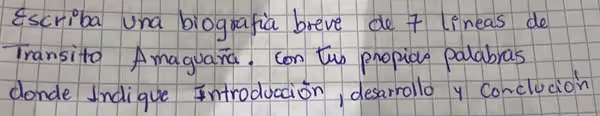 Escriba una biografía breve de 7 líneas de
Transito Amaguaña. Con tus propias palabras
donde Indique Introducción, desarrollo y Conclución